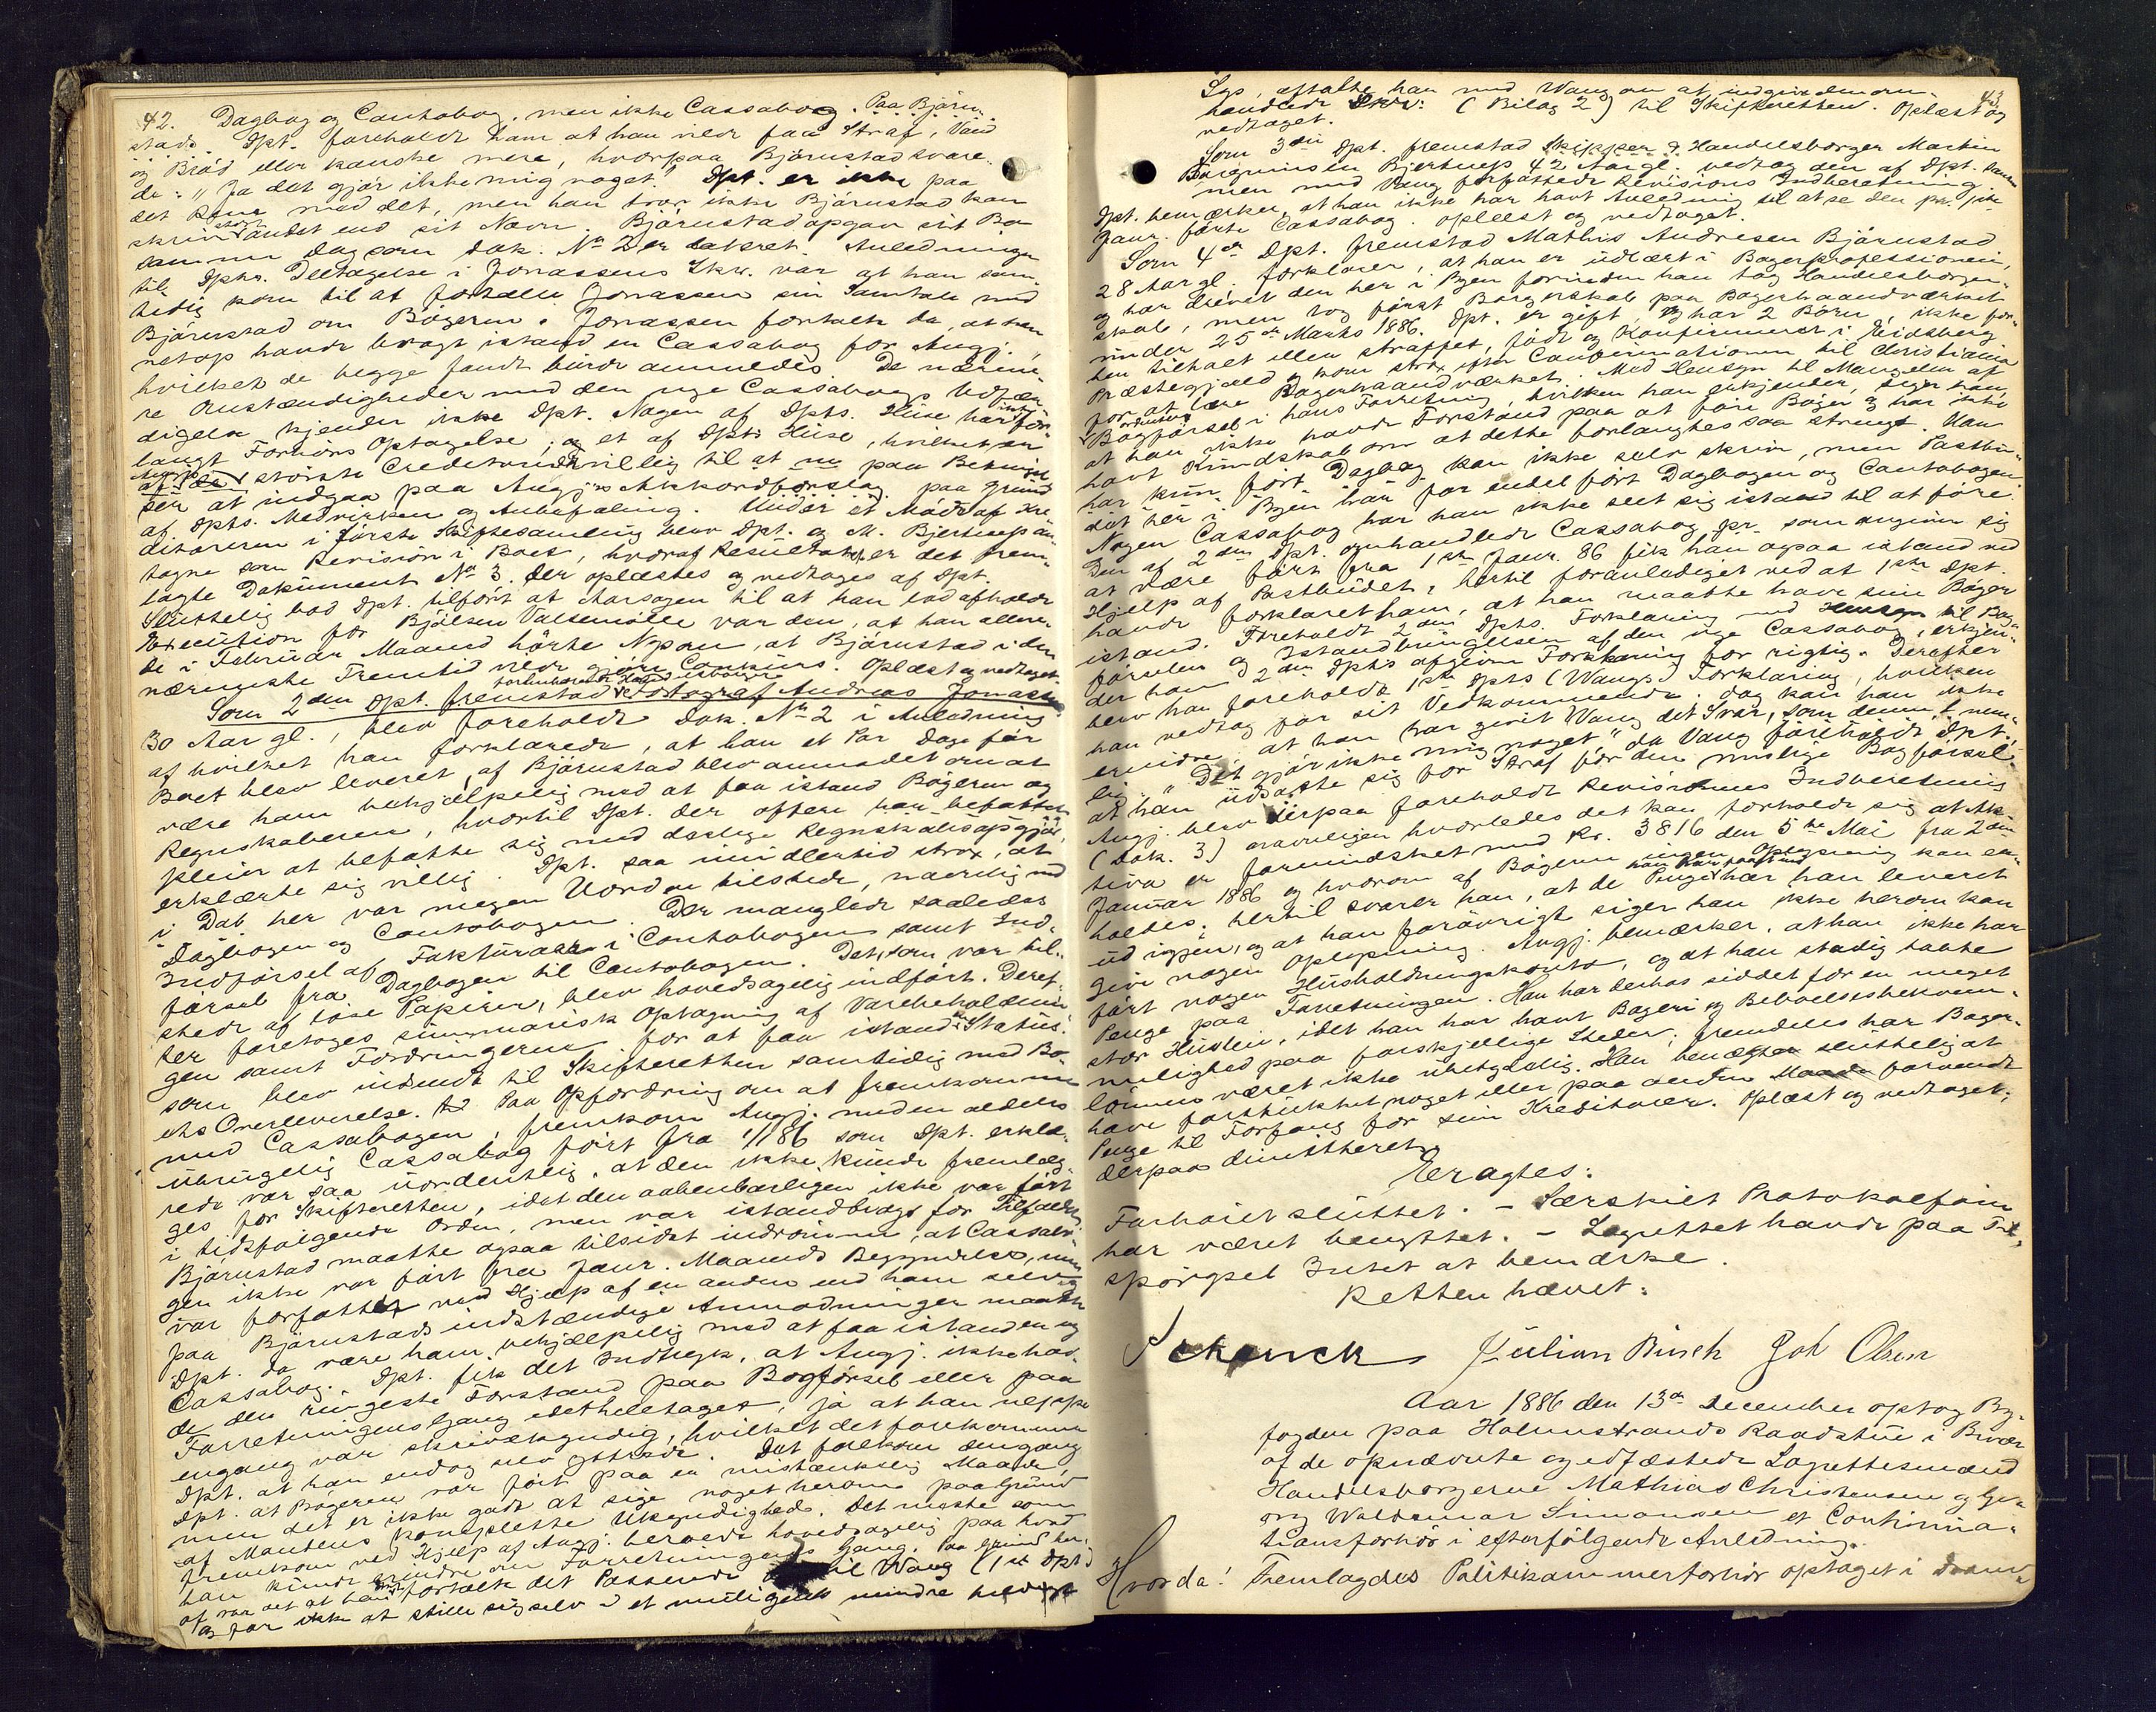 42. Dagbog og Contobog, men ikke Cassabog. Paa Bjørn-
stads. Dpt. foreholdt ham at han vilde faa Straf, Vand
og Brød eller kanske mere, hvorpaa Bjørnstad svare-
de: "Ja det gjør ikke mig noget." Dpt. er ikke paa
det Rene med det, men han tror ikke Bjørnstad kan
skrive stort andet end sit Navn. Bjørnstad opgav sit Bo
samme Dag som Dok. No 2 er dateret. Anledningen
til Dpts. Deeltagelse i Jonassens Skr. var at han sam-
tidig kom til at fortælle Jonassen sin Samtale med
Bjørnstad om Bøgerne. Jonassen fortalte da, at han
netop havde bragt istand en Cassabog for Angj.,
hvilket de begge fandt burde anmeldes. De nærme-
re Omstændigheder med den nye Cassabogs Udfær-
digelse kjender ikke Dpt. Nogen af Dpts. Huse har ikke for-
langt Forhørs Optagelse, og et af Dpts Huse, hvilket er
af de største Creditorer villig til at nu paa Betingel-
ser at indgaa paa Angj.s Akkordforslag paa Grund
af Dpts. Medvirken og Anbefaling. Under et Møde af Kre-
ditorerne i første Skiftesamling blev Dpt. og M. Bjertnes an-
tagne som Revisorer i Boet, hvoraf Resultatet er det frem-
lagte Dokument No 3. Der oplæstes og vedtages af Dpt.
Sluttelig bad Dpt. tilført at Aarsagen til at han lod afholde
Execution for Bjølsen Valsemølle var den, at han allere-
de i Februar Maaned hørte Nysom, at Bjørnstad i den
nærmeste Fremtid vilde gjøre Concurs. Oplæst og vedtaget.
Som 2den Dpt. fremstod Fotograf Andreas Jonassen
30 Aar gl., blev foreholdt Dok. No 2 i Anledning
af hvilket han forklarede, at han et Par Dage før
Boet blev leveret, af Bjørnstad blev anmodet om at
være ham behjælpelig med at faa istand Bøgerne og
Regnskaberne, hvortil Dpt. der oftere har befattet
pleier at befatte sig med deslige Regnskabsopgjør,
erklærte sig villig. Dpt. saa imidlertid strax, at
der var megen Uorden tilstede, navnlig ved
Dagbogen og Contobogen. Der manglede saaledes
Indførsel af Fakturaer i Contobogen samt Ind-
førsel fra Dagbogen til Contobogen. Det, som var til-
stede af løse Papirer, blev hovedsagelig indført. Deref-
ter foretoges summarisk Optagning af Varebeholdnin-
gen samt Fordringerne for at faa istand en Status.
som blev indsendt til Skifteretten samtidig med Bo-
ets Overleverelse. Paa Opfordring om at fremkomme
med Cassabogen, fremkom Angj. med en aldeles
ubrugelig Cassabog ført fra 1/1 86 som Dpt. erklæ-
rede var saa uordentlig, at den ikke kunde fremlæg-
ges for Skifteretten, idet den aabenbarligen ikke var ført
i tidsfølgende Orden, men var istandbragt for Tilfældet.
Bjørnstad maatte ogsaa tilsidst indrømme, at Cassabo-
gen ikke var ført fra Janr. Maaneds Begyndelse, men
var forfattet ved Hjælp af en anden end ham selv og
paa Bjørnstads indstændige Anmodninger maatte
Dpt. da være ham behjælpelig med at faa istand en ny
Cassabog. Dpt. fik det Indtryk, at Angj. ikke hav-
de den ringeste Forstand paa Bogførsel eller paa
Forretningens Gang idetheletaget, ja at han neppe
engang var skrivekyndig, hvilket det forekommer
Dpt. at han endog selv yttrede. Det forekom dengang
Dpt. at Bøgerne var ført paa en mistænkelig Maade,
men det er ikke godt at sige noget herom paa Grund
af Mandens komplette Ukyndighed. Det meste som
fremkom ved Hjælp af Angj. beroede hovedsagelig paa hvad
han kunde erindre om Forretningens Gang. Paa Grund her-
af var det at han fortalte det Passerede til Wang (1ste Dpt)
og for ikke at stille sig selv i et muligens mindre heldigt
43
Lys, aftalte han med Wang om at indgive den om-
handlede Skr: (Bilag 2) til Skifteretten. Oplæst og
vedtaget.
Som 3die Dpt. fremstod Skipper & Handelsborger Martin
Bjertnes 42 Aar gl. vedtog den af Dpt. sam-
men med Wang forfattede Revisions Indberetning.
Dpt. bemærker, at han ikke har havt Anledning til at se den pr. 1ste
Janr. førte Cassabog. Oplæst og vedtaget.
Som 4de Dpt. fremstod Mathis Andresen Bjørnstad
28 Aar gl. forklarer, at han er udlært i Bagerprofessionen,
og har drevet den her i Byen forinden han tog Handelsborger-
skab, men tog først Borgerskab paa Bagerhaandværket
under 25de Marts 1886. Dpt. er gift, og har 2 Børn, ikke før-
hen tiltalt eller straffet, født og Konfirmeret i Eidsberg
Præstegjæld og kom strax efter Confirmationen til Christiania
for at lære Bagerhaandværket. Med Hensyn til Mangelen af
ordentlig Bogførsel i hans Forretning, hvilken han erkjender, siger han,
at han ikke havde Forstand paa at føre Bøger og har ikke
havt Kundskab om at dette forlangtes saa strengt. Han
har kun ført Dagbog kan ikke selv skrive, men Postbu-
det her i Byen har for endel ført Dagbogen og Contobogen.
Nogen Cassabog har han ikke seet sig istand til at føre.
Den af 2den Dpt. omhandlede Cassabog pr. som angiver sig
at være ført fra 1ste Janr. 86 fik han ogsaa istand ved
Hjælp af Postbudet, hertil foranlediget ved at 1ste Dpt.
havde forklaret ham, at han maatte have sine Bøger
istand. Foreholdt 2den Dpts. Forklaring med Hensyn til Bog-
førselen og Istandbringelsen af den nye Cassabog, erkjen-
der han 2den Dpts afgivne Forklaring for rigtig. Derefter
blev han foreholdt 1ste Dpts (Wangs) Forklaring, hvilken
han vedtog for sit Vedkommende. Dog kan han ikke
erindre, at han har givet Wang det Svar, som denne, nem-
lig: "Det gjør ikke mig noget" da Wang foreholdt Dpt.,
at han udsatte sig for Straf for den muslige Bogførsel.
Angj. blev dernæst foreholdt Revisionens Indberetning
(Dok. 3) navnligen hvorledes det kan forholde sig at Ak-
tiva er formindsket med Kr. 3816 den 5te Mai fra 2den
Januar 1886 og hvorom af Bøgerne ingen Oplysning kan er-
holdes; hertil svarer han, at de Penge han har faaet ind har han leveret
ud igjen, og at han forøvrigt siger han ikke herom kan
give nogen Oplysning. Angj. bemærker, at han ikke har
ført nogen Husholdningskonto, og at han stadig tabte
Penge paa Forretningen. Han har derhos siddet for en meget
stor Husleie, idet han har havt Bageri og Beboelsesbekvem-
melighed paa forskjellige Steder; fremdeles har Bager-
lønnen været ikke ubetydelig. Han benægter sluttelig at
have forstukket noget eller paa anden Maade forvendt
Penge til Forfang for sine Kreditorer. Oplæst og vedtaget;
derpaa dimitteret.
Eragtes:
Forhøret sluttet. - Særskilt Protokolførsel
har været benyttet. - Lagrettet havde paa Til-
spørgsel Intet at bemærke.
Retten hævet:
Schenck Julian Busch Joh Olsen
Aar 1886 den 13de December optog By-
fogden paa Holmestrands Raadstue i Bivær
af de opnævnte og edfæstede Lagrettesmænd
Handelsborgerne Mathias Christensen og Ge-
org Waldemar Simonsen et Continua-
tionsforhør i efterfølgende Anledning.
Hvorda! Fremlagdes Politikammerforhør optaget i